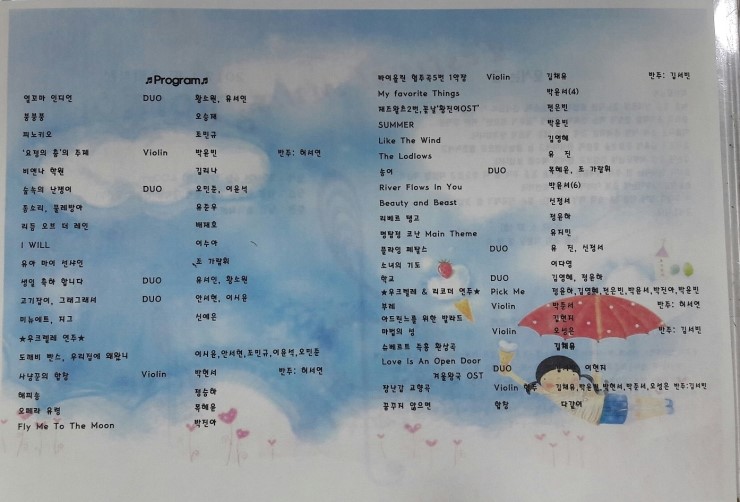 ♬Program♬
열꼬마 인디언 DUO 황소원, 유서연
붕붕붕 오승혜
피노키오 조민규
'요정의 춤'의 주제 Violin 박윤빈 반주: 허서연
비엔나 학원 김리나
숲속의 난쟁이 DUO 오민준, 이윤석
종소리, 클레망아 유준우
리듬 오브 더 레인 배재호
I WILL 이수아
유아 마이 선샤인 조 가람휘
생일 축하 합니다 DUO 유서연, 황소원
고기잡이, 그래그래서 DUO 안서현, 이서윤
미뉴에트, 지그 신예은
★우크렐레 연주★
도깨비 빤스, 우리집에 왜왔니 이서윤,안서현,조민규,이윤석,오민준
사냥꾼의 합창 Violin 박현서 반주: 허서연
해피송 정승하
오페라 유령 목혜윤
Fly Me To The Moon 박진아
바이올린 협주곡5번 1악장 Violin 김채윤 반주: 김서빈
My favorite Things 박윤서(4)
재즈왈츠2번,꽃날'황진이OST' 전은빈
SUMMER 박윤빈
Like The Wind 김영혜
The Lodlows 유 진
놀이 DUO 목혜윤, 조 가람휘
River Flows In You 박윤서(6)
Beauty and Beast 신정서
리베르 탱고 정윤하
명탐정 코난 Main Theme 유지민
플라임 페탈스 DUO 유 진, 신정서
소녀의 기도 이다영
학교 DUO 김영혜, 정윤하
★우크렐레 & 리코더 연주★ Pick Me 정윤하,김영혜,전은빈,박윤서,박진아,박윤빈
부레 Violin 박중서 반주: 허서연
아드린느를 위한 발라드 김현지
마법의 성 Violin 오성은 반주: 김서빈
슈베르트 즉흥 환상곡 김채윤
Love Is An Open Door DUO 이현지
겨울왕국 OST
장난감 교향곡 Violin 합주 김채윤,박윤빈,박현서,박중서,오성은 반주:김서빈
꿈꾸지 않으면 합창 다같이